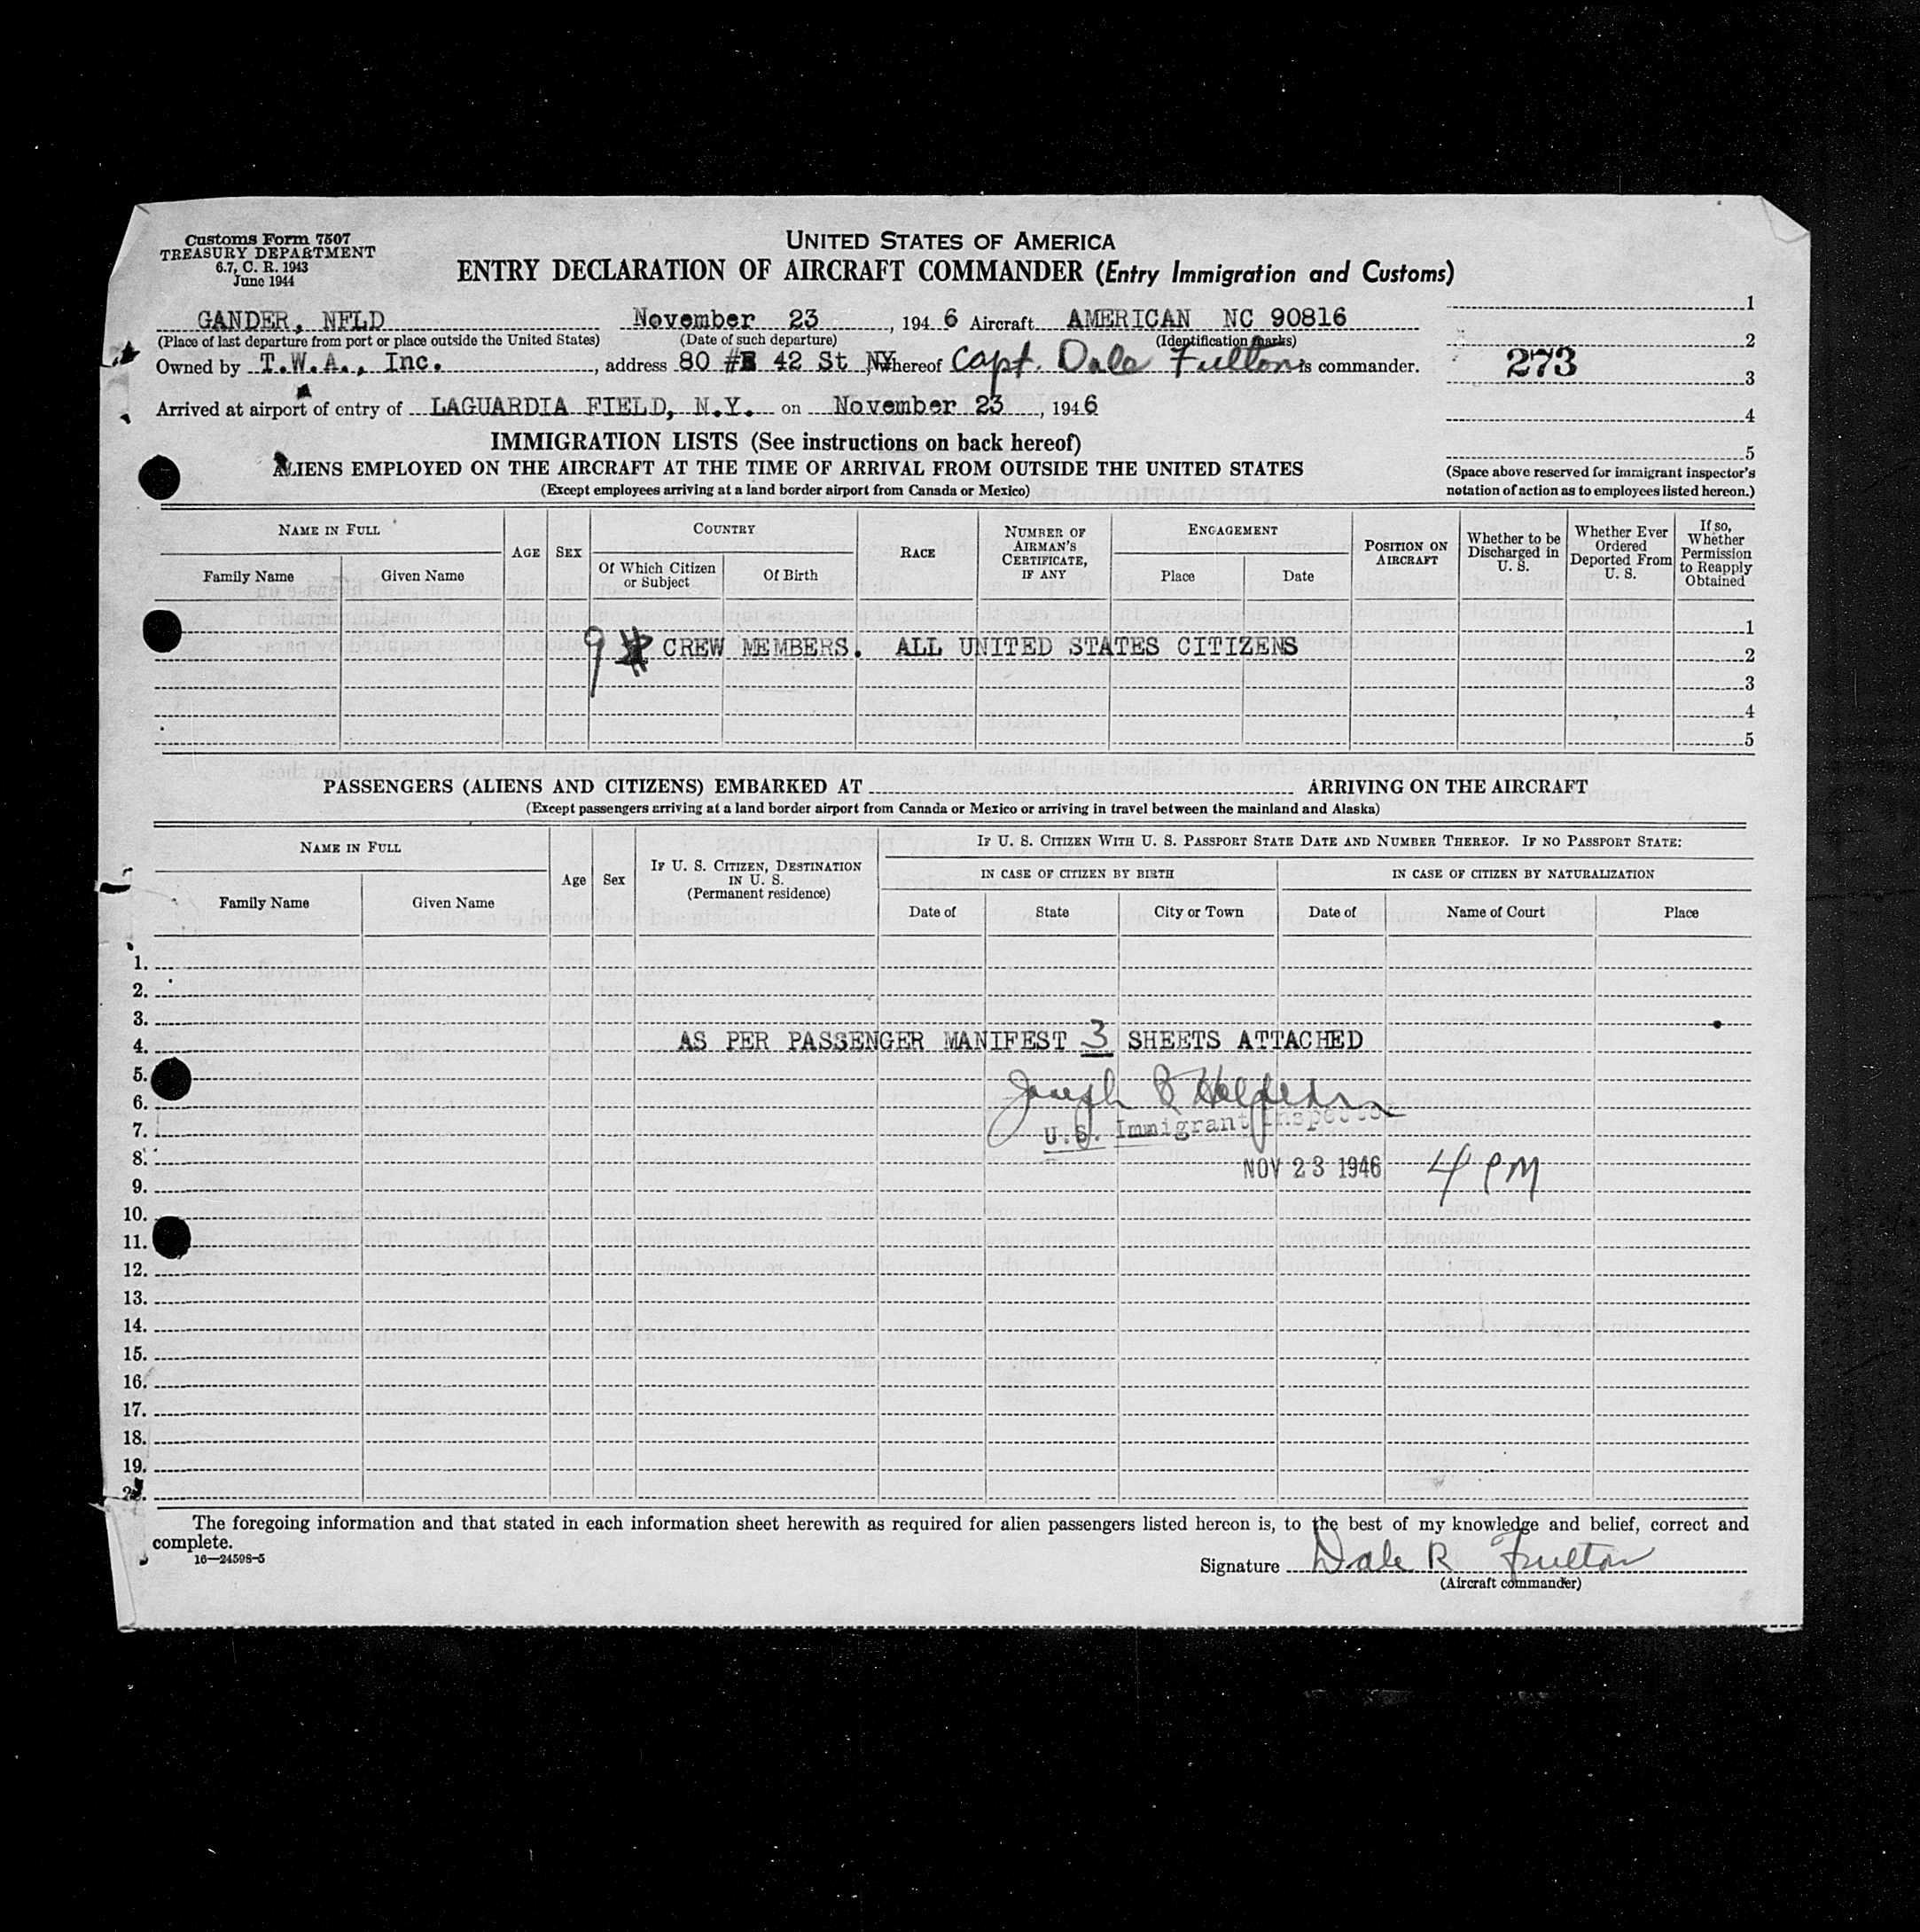 Customs Form 7507
TREASURY DEPARTMENT
6.7, C. R. 1943
June 1944
UNITED STATES OF AMERICA
ENTRY DECLARATION OF AIRCRAFT COMMANDER (Entry Immigration and Customs)
GANDER, NFLD November 23, 1946 Aircraft AMERICAN NC 90816
(Place of last departure from port or place outside the United States) (Date of such departure) (Identification marks)
Owned by T.W.A., Inc., address 80 42 St NY, whereof Capt. Dale Fulton is commander.
Arrived at airport of entry of LAGUARDIA FIELD, N.Y. on November 23, 1946
1
2
273
3
4
5
(Space above reserved for immigrant inspector's
notation of action as to employees listed hereon.)
IMMIGRATION LISTS (See instructions on back hereof)
ALIENS EMPLOYED ON THE AIRCRAFT AT THE TIME OF ARRIVAL FROM OUTSIDE THE UNITED STATES
(Except employees arriving at a land border airport from Canada or Mexico)
NAME IN FULL
Family Name Given Name
AGE SEX
COUNTRY
Of Which Citizen or Subject
Of Birth
RACE
NUMBER OF AIRMAN'S CERTIFICATE, IF ANY
ENGAGEMENT
Place Date
POSITION ON AIRCRAFT
Whether to be Discharged in U. S.
Whether Ever Ordered Deported From U. S.
If so, Whether Permission to Reapply Obtained
1
9 CREW MEMBERS. ALL UNITED STATES CITIZENS
2
3
4
5
PASSENGERS (ALIENS AND CITIZENS) EMBARKED AT ARRIVING ON THE AIRCRAFT
(Except passengers arriving at a land border airport from Canada or Mexico or arriving in travel between the mainland and Alaska)
NAME IN FULL
Family Name Given Name
Age Sex
IF U. S. CITIZEN, DESTINATION IN U. S.
(Permanent residence)
IF U. S. CITIZEN WITH U. S. PASSPORT STATE DATE AND NUMBER THEREOF. IF NO PASSPORT STATE:
IN CASE OF CITIZEN BY BIRTH IN CASE OF CITIZEN BY NATURALIZATION
Date of State City or Town Date of Name of Court Place
1.
2.
3.
AS PER PASSENGER MANIFEST 3 SHEETS ATTACHED
4.
5.
Joseph
6.
7.
U.S. Immigrant Inspector
8.
NOV 23 1946 4 PM
9.
10.
11.
12.
13.
14.
15.
16.
17.
18.
19.
20.
The foregoing information and that stated in each information sheet herewith as required for alien passengers listed hereon is, to the best of my knowledge and belief, correct and
complete.
16—24598-5
Signature Dale R Fulton
(Aircraft commander)